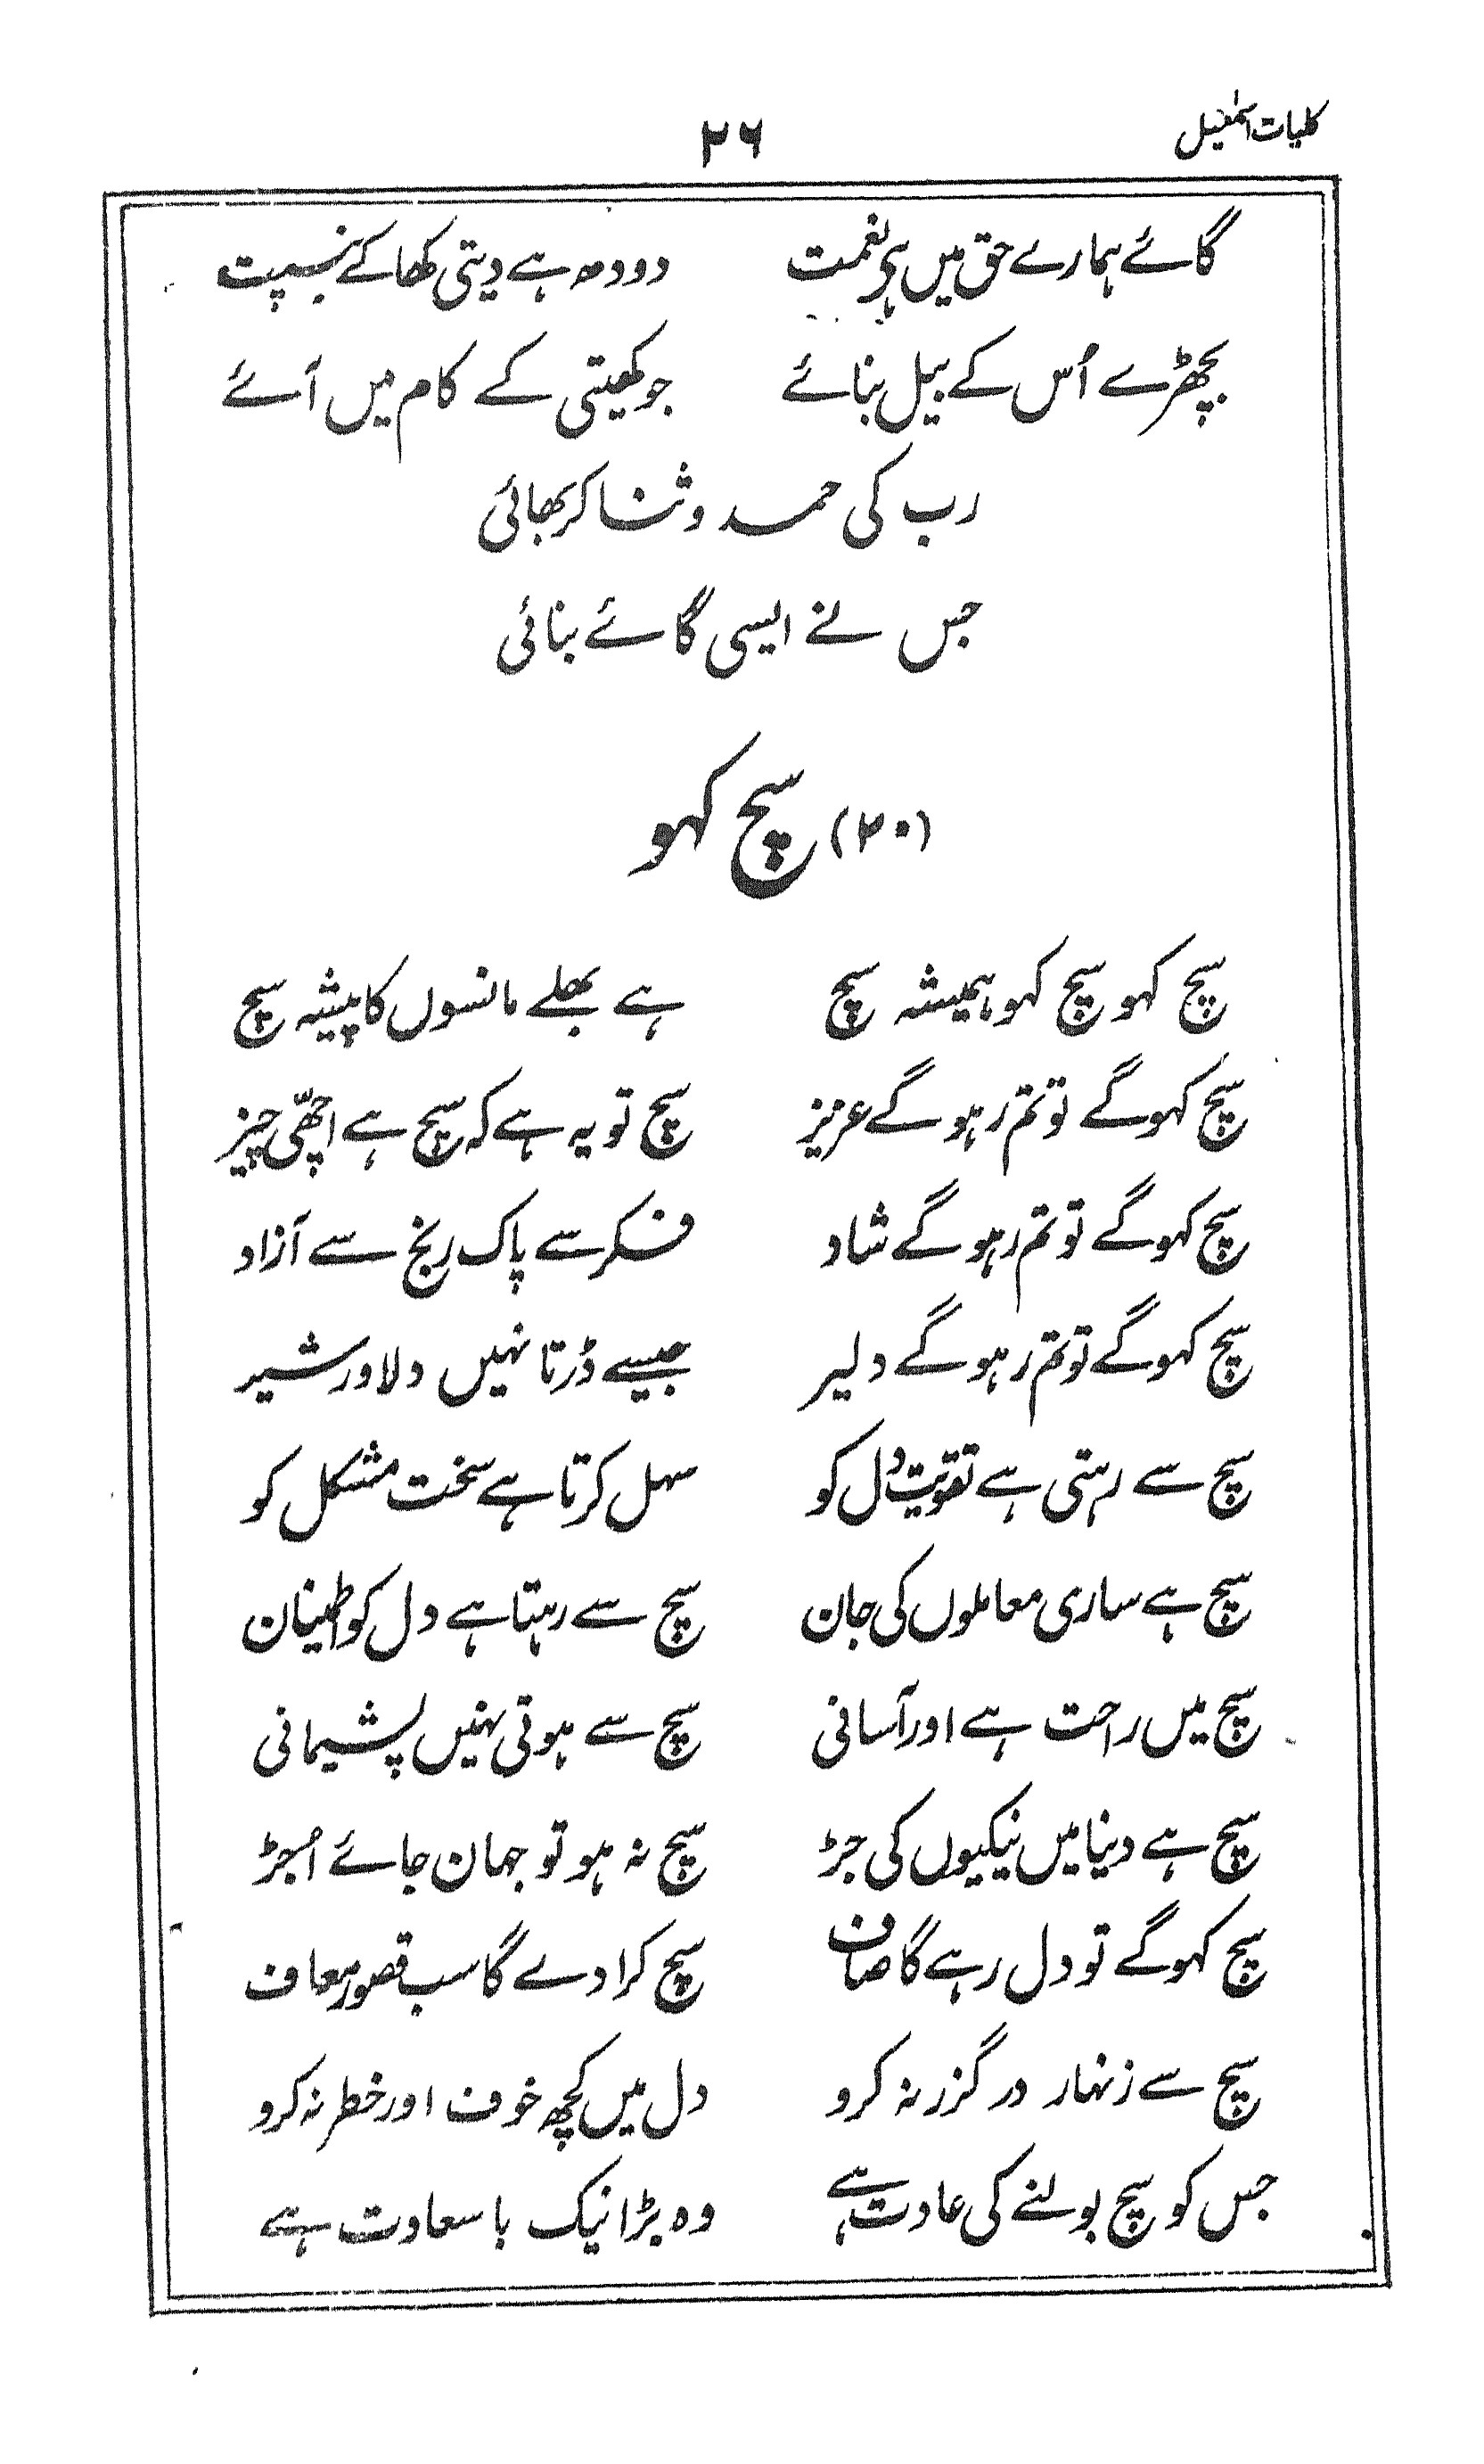 کلیات اسمٰعیل
۲۶
گائے ہمارے حق میں ہے نعمت دودھ ہے دیتی کھا کے بنسپت
بچھڑے اُس کے بیل بنائے جو کھیتی کے کام میں آئے
رب کی حمد و ثنا کر بھائی
جس نے ایسی گائے بنائی
(۲۰) سچ کہو
سچ کہو سچ کہو ہمیشہ سچ ہے بھلے مانسوں کا پیشہ سچ
سچ کہو گے تو تم رہو گے عزیز سچ تو یہ ہے کہ سچ ہے اچھّی چیز
سچ کہو گے تو تم رہو گے شاد فکر سے پاک رنج سے آزاد
سچ کہو گے تو تم رہو گے دلیر جیسے ڈرتا نہیں دلاور شیر
سچ سے رہتی ہے تقویت دل کو سہل کرتا ہے سخت مشکل کو
سچ ہے ساری معاملوں کی جان سچ سے رہتا ہے دل کو اطمینان
سچ میں راحت ہے اور آسانی سچ سے ہوتی نہیں پشیمانی
سچ ہے دنیا میں نیکیوں کی جڑ سچ نہ ہو تو جہان جائے اُجڑ
سچ کہو گے تو دل رہے گا صاف سچ کرا دے گا سب قصور معاف
سچ سے زنہار درگزر نہ کرو دل میں کچھ خوف اور خطر نہ کرو
جس کو سچ بولنے کی عادت ہے وہ بڑا نیک با سعادت ہے